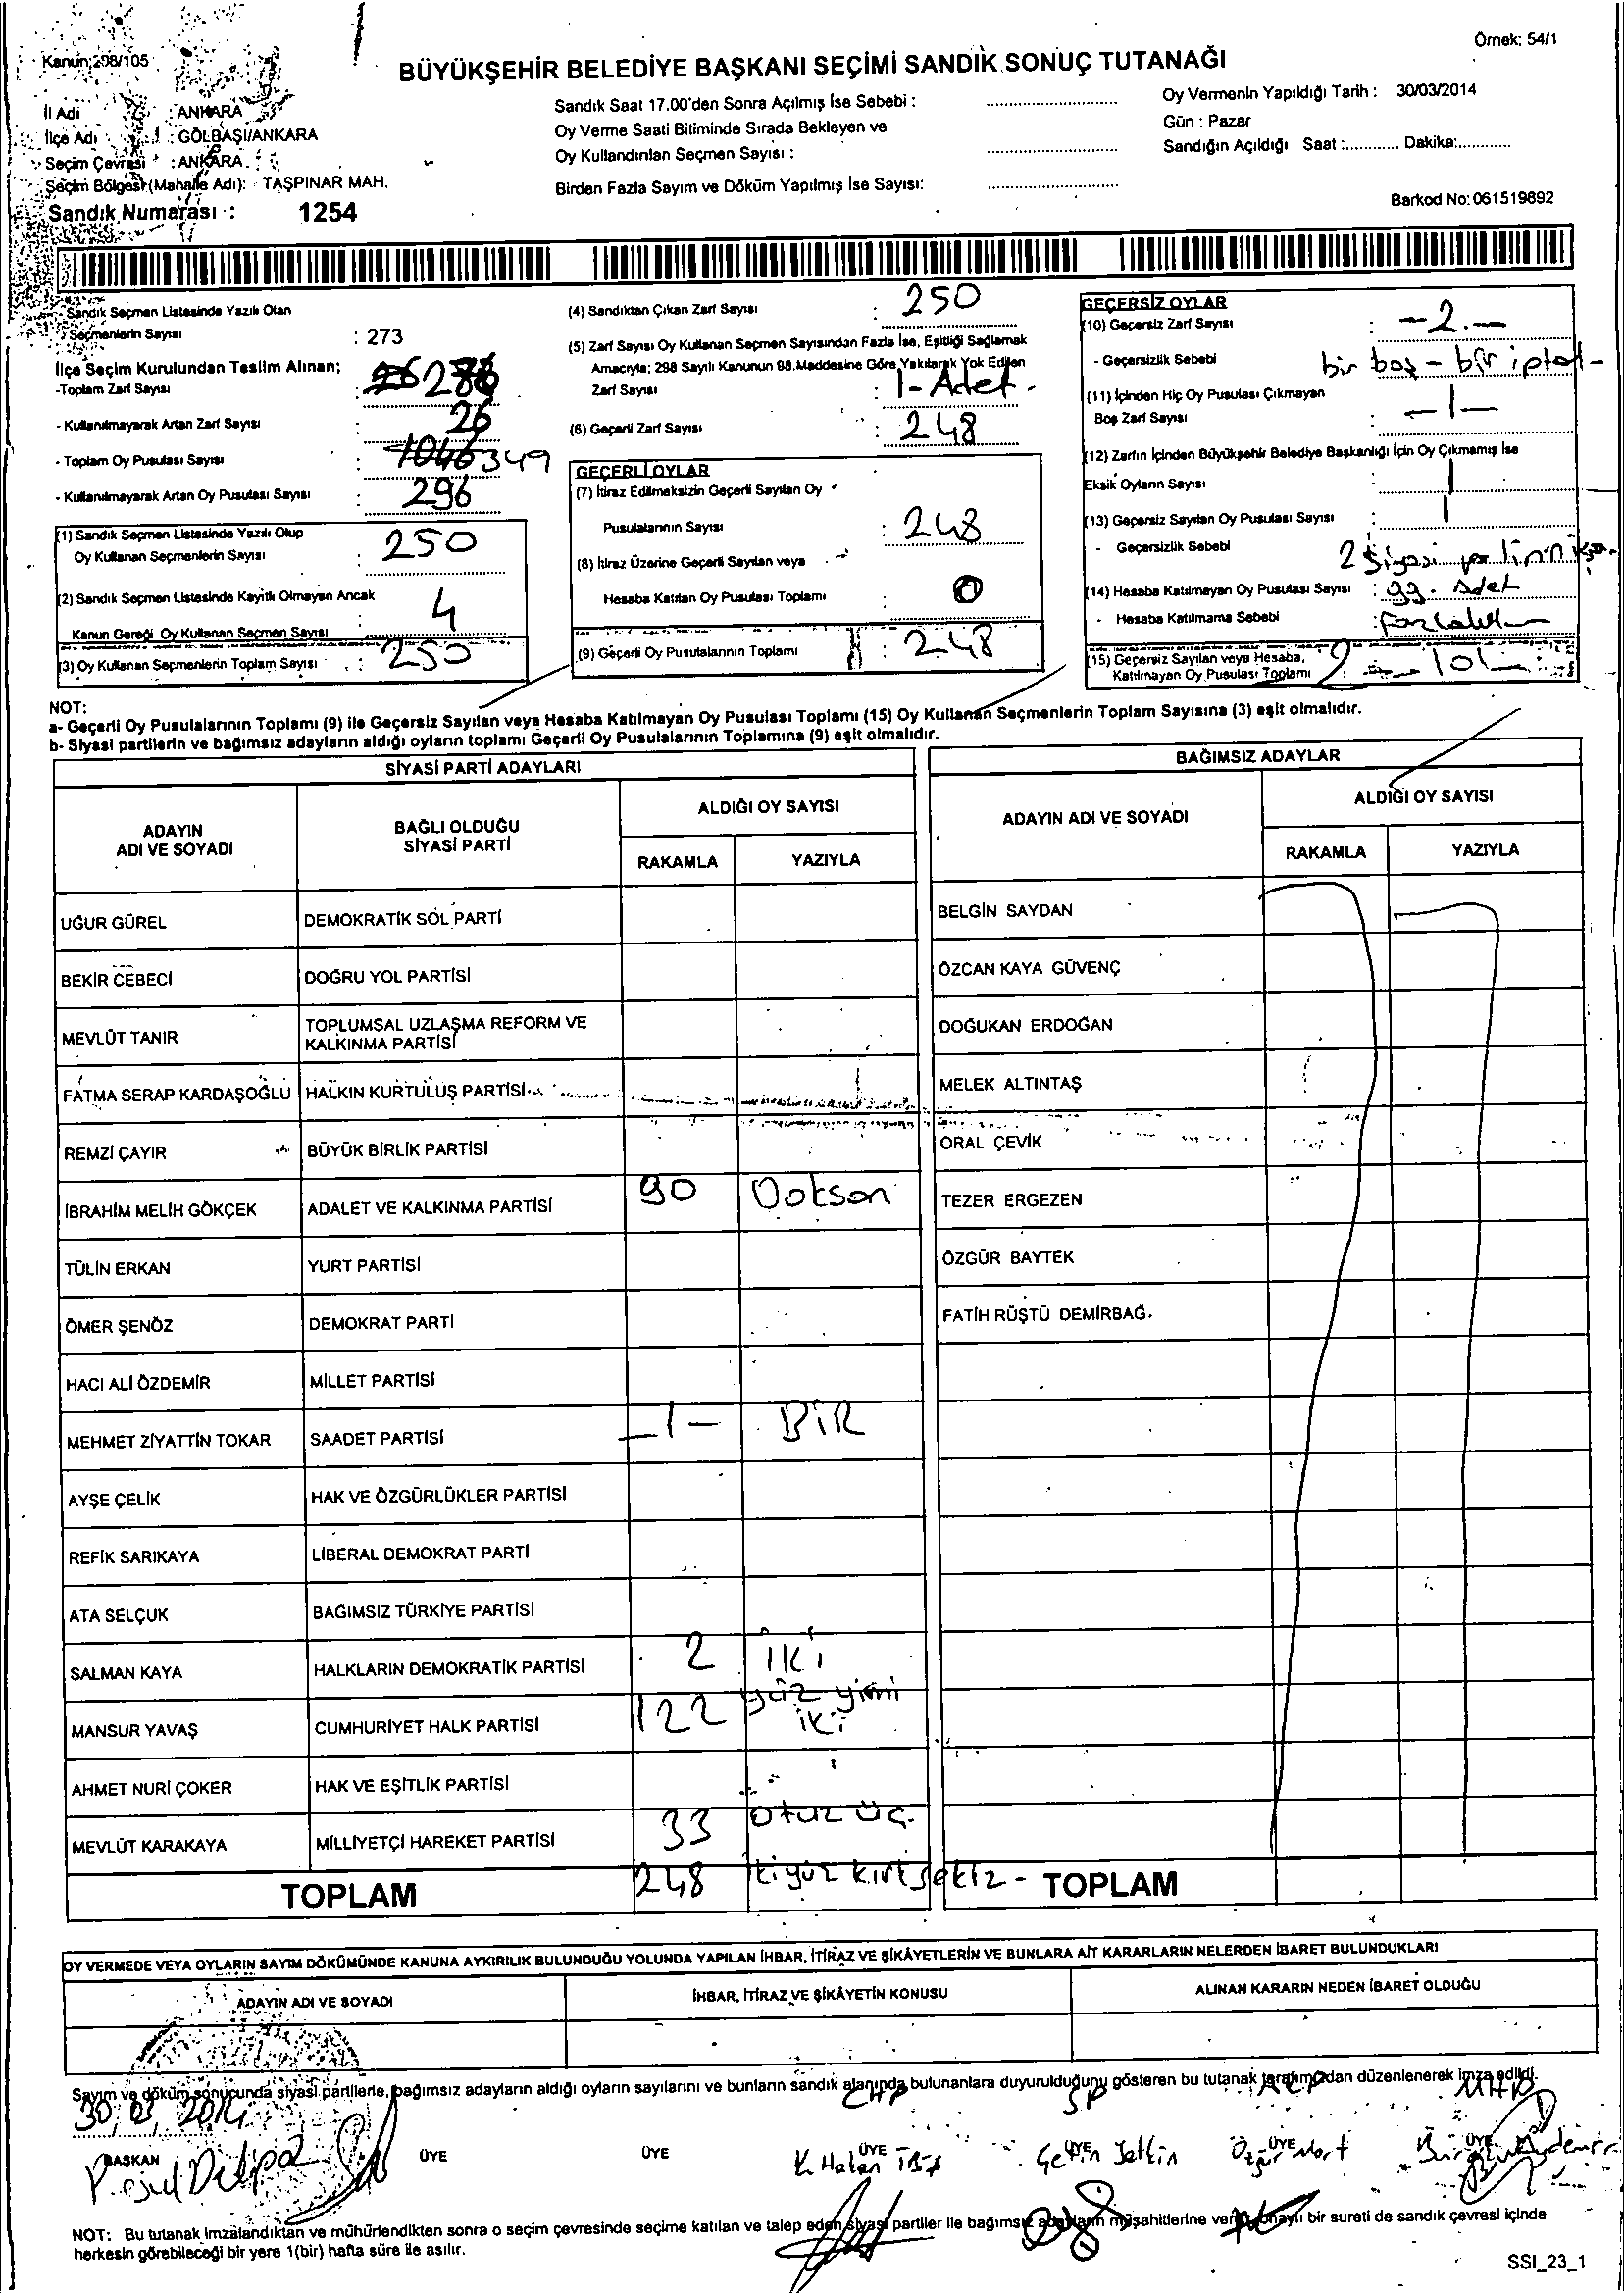 Örnek: 54/1
Kanun:298/105
BÜYÜKŞEHİR BELEDİYE BAŞKANI SEÇİMİ SANDIK SONUÇ TUTANAĞI
İl Adı : ANKARA
İlçe Adı : GÖLBAŞI/ANKARA
Seçim Çevresi : ANKARA
Seçim Bölgesi (Mahalle Adı): TAŞPINAR MAH.
Sandık Numarası : 1254
Sandık Saat 17.00'den Sonra Açılmış İse Sebebi :
Oy Verme Saati Bitiminde Sırada Bekleyen ve
Oy Kullandırılan Seçmen Sayısı :
Birden Fazla Sayım ve Döküm Yapılmış İse Sayısı:
Oy Vermenin Yapıldığı Tarih : 30/03/2014
Gün : Pazar
Sandığın Açıldığı Saat :............ Dakika:............
Barkod No: 061519892
Sandık Seçmen Listesinde Yazılı Olan
Seçmenlerin Sayısı : 273
İlçe Seçim Kurulundan Teslim Alınan;
-Toplam Zarf Sayısı :
- Kullanılmayarak Artan Zarf Sayısı : 26
- Toplam Oy Pusulası Sayısı : 1046 349
- Kullanılmayarak Artan Oy Pusulası Sayısı : 296
(1) Sandık Seçmen Listesinde Yazılı Olup
Oy Kullanan Seçmenlerin Sayısı : 250
(2) Sandık Seçmen Listesinde Kayıtlı Olmayan Ancak
Kanun Gereği Oy Kullanan Seçmen Sayısı : 4
(3) Oy Kullanan Seçmenlerin Toplam Sayısı : 250
(4) Sandıktan Çıkan Zarf Sayısı : 250
(5) Zarf Sayısı Oy Kullanan Seçmen Sayısından Fazla İse, Eşitliği Sağlamak
Amacıyla; 298 Sayılı Kanunun 98.Maddesine Göre Yakılarak Yok Edilen
Zarf Sayısı : 1-Adet.
(6) Geçerli Zarf Sayısı : 248
GEÇERLİ OYLAR
(7) İtiraz Edilmeksizin Geçerli Sayılan Oy
Pusulalarının Sayısı : 248
(8) İtiraz Üzerine Geçerli Sayılan veya
Hesaba Katılan Oy Pusulası Toplamı : 0
(9) Geçerli Oy Pusulalarının Toplamı : 248
GEÇERSİZ OYLAR
(10) Geçersiz Zarf Sayısı : -2.-
- Geçersizlik Sebebi bir boş - bir iptal-
(11) İçinden Hiç Oy Pusulası Çıkmayan
Boş Zarf Sayısı : -1-
(12) Zarfın İçinden Büyükşehir Belediye Başkanlığı İçin Oy Çıkmamış İse
Eksik Oyların Sayısı : 1
(13) Geçersiz Sayılan Oy Pusulası Sayısı : 1
- Geçersizlik Sebebi 2 Siyasi partinin
(14) Hesaba Katılmayan Oy Pusulası Sayısı : 99. Adet
- Hesaba Katılmama Sebebi :
(15) Geçersiz Sayılan veya Hesaba
Katılmayan Oy Pusulası Toplamı -101-
NOT:
a- Geçerli Oy Pusulalarının Toplamı (9) ile Geçersiz Sayılan veya Hesaba Katılmayan Oy Pusulası Toplamı (15) Oy Kullanan Seçmenlerin Toplam Sayısına (3) eşit olmalıdır.
b- Siyasi partilerin ve bağımsız adayların aldığı oyların toplamı Geçerli Oy Pusulalarının Toplamına (9) eşit olmalıdır.
SİYASİ PARTİ ADAYLARI
ADAYIN ADI VE SOYADI BAĞLI OLDUĞU SİYASİ PARTİ ALDIĞI OY SAYISI
RAKAMLA YAZIYLA
UĞUR GÜREL DEMOKRATİK SOL PARTİ
BEKİR CEBECİ DOĞRU YOL PARTİSİ
MEVLÜT TANIR TOPLUMSAL UZLAŞMA REFORM VE KALKINMA PARTİSİ
FATMA SERAP KARDAŞOĞLU HALKIN KURTULUŞ PARTİSİ
REMZİ ÇAYIR BÜYÜK BİRLİK PARTİSİ
İBRAHİM MELİH GÖKÇEK ADALET VE KALKINMA PARTİSİ 90 Doksan
TÜLİN ERKAN YURT PARTİSİ
ÖMER ŞENÖZ DEMOKRAT PARTİ
HACI ALİ ÖZDEMİR MİLLET PARTİSİ
MEHMET ZİYATTİN TOKAR SAADET PARTİSİ -1- BİR
AYŞE ÇELİK HAK VE ÖZGÜRLÜKLER PARTİSİ
REFİK SARIKAYA LİBERAL DEMOKRAT PARTİ
ATA SELÇUK BAĞIMSIZ TÜRKİYE PARTİSİ
SALMAN KAYA HALKLARIN DEMOKRATİK PARTİSİ 2 İKİ
MANSUR YAVAŞ CUMHURİYET HALK PARTİSİ 122 yüz yirmi iki
AHMET NURİ ÇOKER HAK VE EŞİTLİK PARTİSİ
MEVLÜT KARAKAYA MİLLİYETÇİ HAREKET PARTİSİ 33 otuz üç.
TOPLAM 248 ikiyüz kırk sekiz -
BAĞIMSIZ ADAYLAR
ADAYIN ADI VE SOYADI ALDIĞI OY SAYISI
RAKAMLA YAZIYLA
BELGİN SAYDAN
ÖZCAN KAYA GÜVENÇ
DOĞUKAN ERDOĞAN
MELEK ALTINTAŞ
ORAL ÇEVİK
TEZER ERGEZEN
ÖZGÜR BAYTEK
FATİH RÜŞTÜ DEMİRBAĞ.
TOPLAM
OY VERMEDE VEYA OYLARIN SAYIM DÖKÜMÜNDE KANUNA AYKIRILIK BULUNDUĞU YOLUNDA YAPILAN İHBAR, İTİRAZ VE ŞİKÂYETLERİN VE BUNLARA AİT KARARLARIN NELERDEN İBARET BULUNDUKLARI
ADAYIN ADI VE SOYADI İHBAR, İTİRAZ VE ŞİKÂYETİN KONUSU ALINAN KARARIN NEDEN İBARET OLDUĞU
Sayım ve döküm sonucunda siyasi partilerle, bağımsız adayların aldığı oyların sayılarını ve bunların sandık alanında bulunanlara duyurulduğunu gösteren bu tutanak tarafımızdan düzenlenerek imza edildi.
30.03.2014 CHP SP AKP MHP
BAŞKAN ÜYE ÜYE ÜYE ÜYE ÜYE ÜYE
K. Hakan Çetin Özgür Mort
NOT: Bu tutanak imzalandıktan ve mühürlendikten sonra o seçim çevresinde seçime katılan ve talep eden siyasi partiler ile bağımsız adayların müşahitlerine verilir, onaylı bir sureti de sandık çevresi içinde
herkesin görebileceği bir yere 1(bir) hafta süre ile asılır.
SSI_23_1